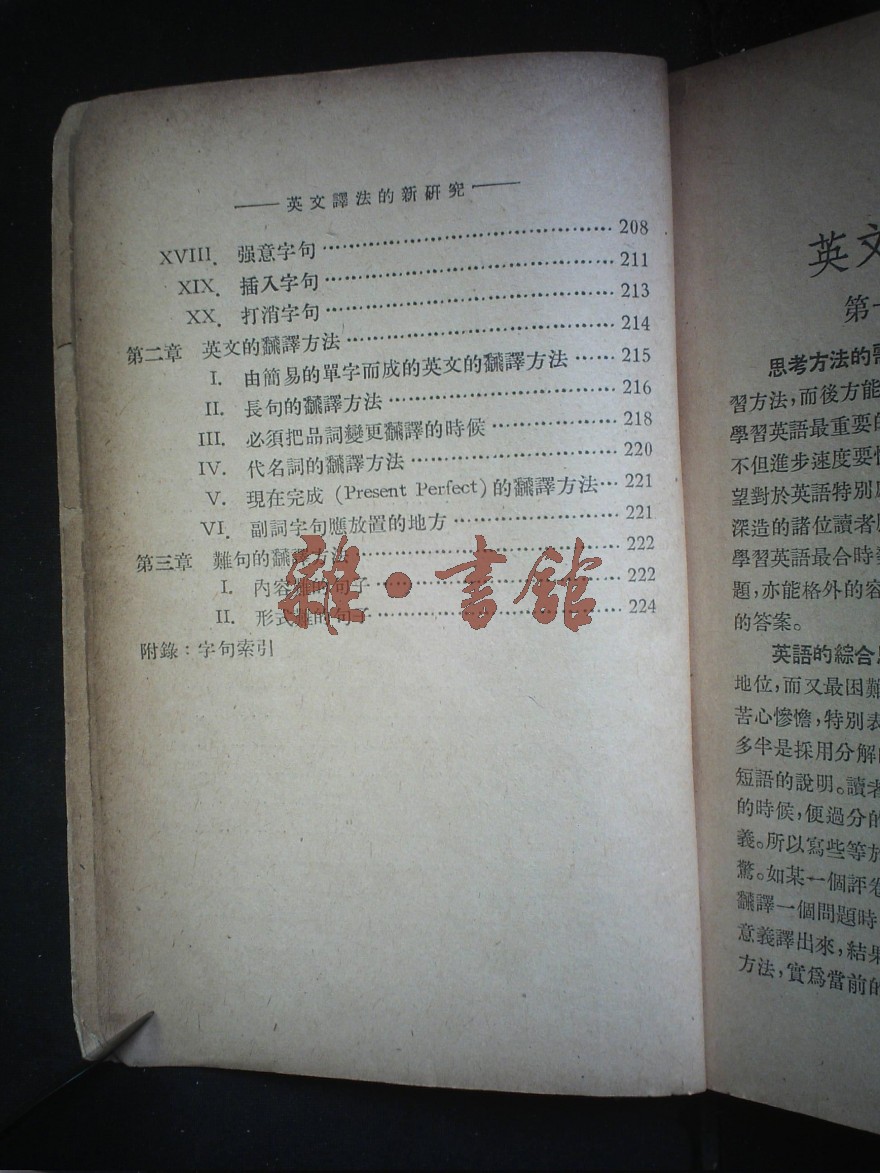 ——英文譯法的新硏究——
XVIII. 强意字句 …… 208
XIX. 插入字句 …… 211
XX. 打消字句 …… 213
第二章 英文的飜譯方法 …… 214
I. 由簡易的單字而成的英文的飜譯方法 …… 215
II. 長句的飜譯方法 …… 216
III. 必須把品詞變更飜譯的時候 …… 218
IV. 代名詞的飜譯方法 …… 220
V. 現在完成 (Present Perfect) 的飜譯方法 … 221
VI. 副詞字句應放置的地方 …… 221
第三章 難句的飜譯方法 …… 222
I. 內容難的句子 …… 222
II. 形式難的句子 …… 224
附錄：字句索引
雜·書館
英文
第一
思考方法的
習方法，而後方能
學習英語最重要的
不但進步速度要
望對於英語特別
深造的諸位讀者
學習英語最合時
題，亦能格外的容
的答案。
英語的綜合
地位，而又最困難
苦心慘憺，特別表
多半是採用分解
短語的說明。讀者
的時候，便過分的
義。所以寫些等於
驚。如某一個評卷
飜譯一個問題時
意義譯出來，結果
方法，實爲當前的